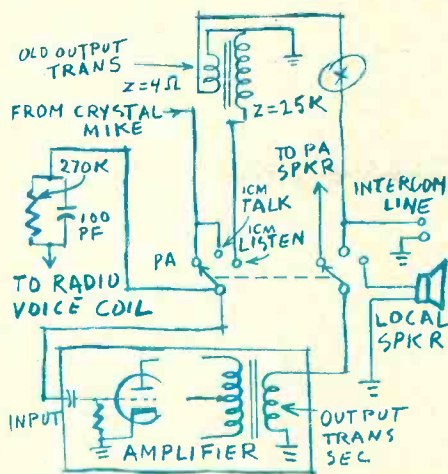 OLD OUTPUT
TRANS
Z=4Ω
Z=25K
FROM CRYSTAL
MIKE
270K
100
PF
TO RADIO
VOICE COIL
PA
ICM
TALK
ICM
LISTEN
TO PA
SPKR
INTERCOM
LINE
LOCAL
SPKR
INPUT
AMPLIFIER
OUTPUT
TRANS
SEC